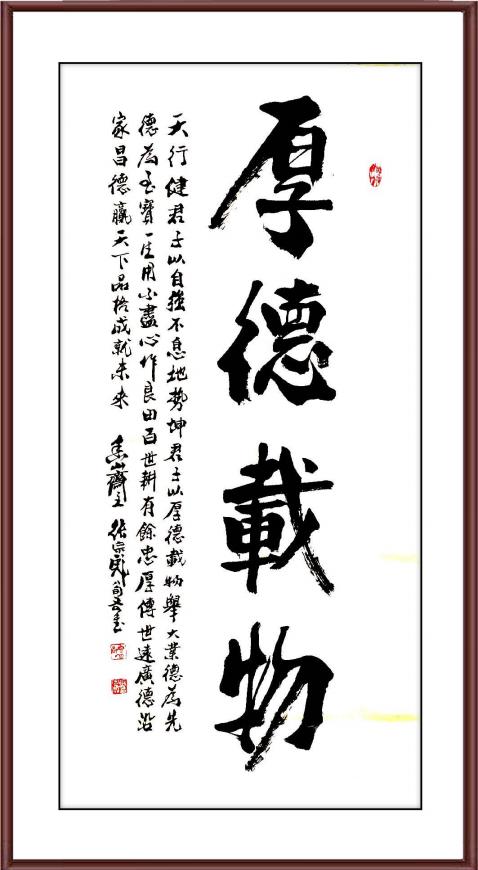 厚德載物
天行健君子以自強不息地勢坤君子以厚德載物舉大業德為先
德為至寶一生用不盡心作良田百世耕有餘忠厚傳世遠廣德沿
家昌德贏天下品格成就未來 山齋主